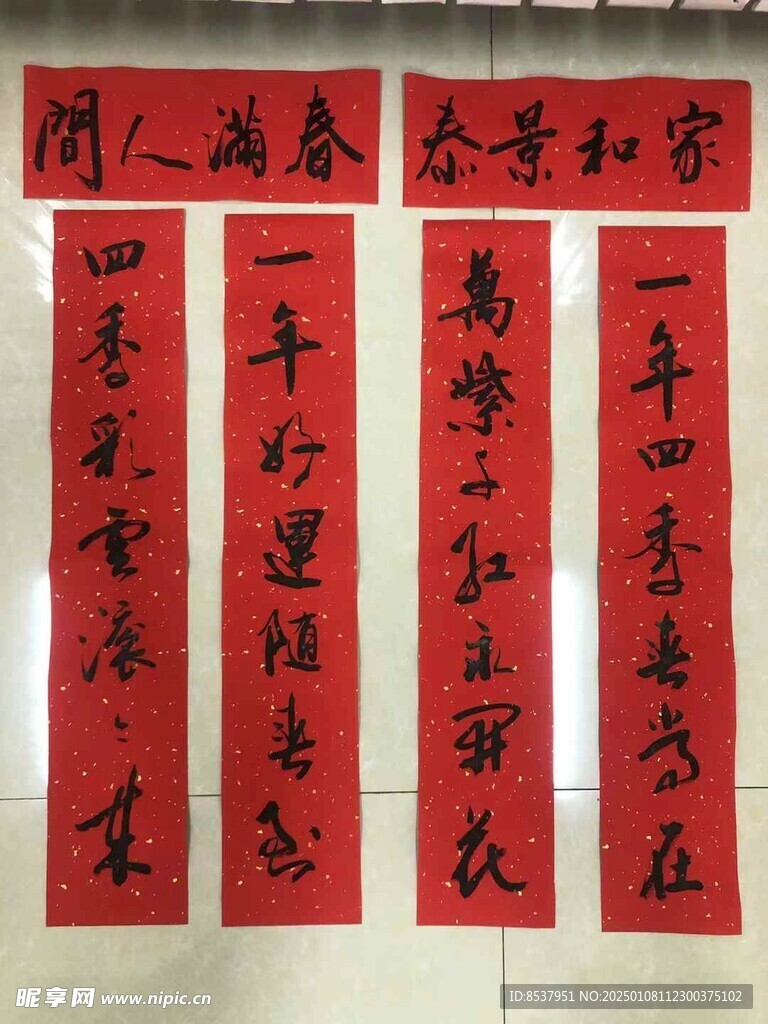 家和景泰
一年四季春常在
萬紫千紅永開花
春滿人間
一年好運随春到
四季彩雲滚々來
昵享网 www.nipic.cn
ID:8537951 NO:20250108112300375102